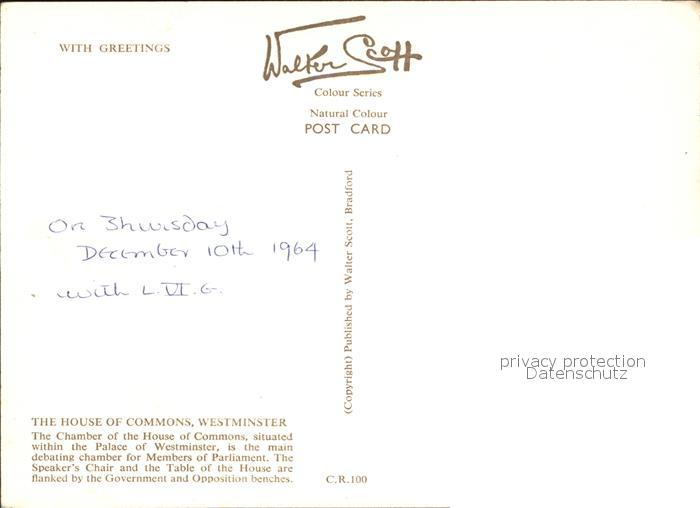 WITH GREETINGS
Walter Scott
Colour Series
Natural Colour
POST CARD
On Thursday
December 10th 1964
with L.VI.G.
(Copyright) Published by Walter Scott, Bradford
privacy protection
Datenschutz
THE HOUSE OF COMMONS, WESTMINSTER
The Chamber of the House of Commons, situated
within the Palace of Westminster, is the main
debating chamber for Members of Parliament. The
Speaker's Chair and the Table of the House are
flanked by the Government and Opposition benches.
C.R.100